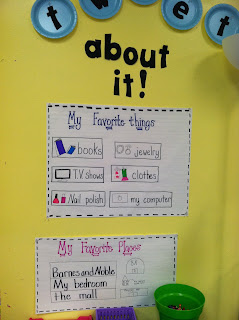 tweet
about
it!
My Favorite things
books
jewelry
T.V shows
clothes
Nail polish
my computer
My Favorite Places
Barnes and Noble
My bedroom
the mall